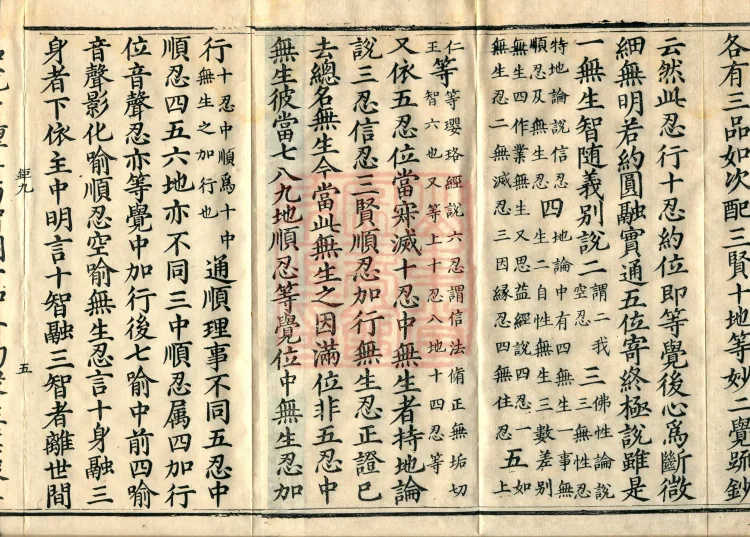 各有三品如次配三賢十地等妙二覺䟽鈔
云然此忍行十忍約位即等覺後心爲斷微
細無明若約圓融實通五位寄終極說雖是
一無生智随義別說二謂二我空忍三佛性論說三無性忍
特地論說信忍順忍及無生忍四地論中有四無生一事無生二自性無生三數差別
無生四作業無生又思益經說四忍一無生忍二無滅忍三因緣忍四無住忍五如上
仁王等等瓔珞經說六忍謂信法脩正無垢切智六也又等上十忍八地十四忍等
又依五忍位當寂滅十忍中無生者持地論
說三忍信忍三賢順忍加行無生忍正證已
去總名無生今當此無生之因滿位非五忍中
無生彼當七八九地順忍等覺位中無生忍加
鉅九 五
行十忍中順爲十中無生之加行也通順理事不同五忍中
順忍四五六地亦不同三中順忍属四加行
位音聲忍亦等覺中加行後七喻中前四喻
音聲影化喻順忍空喻無生忍言十身融三
身者下依主中明言十智融三智者離世間